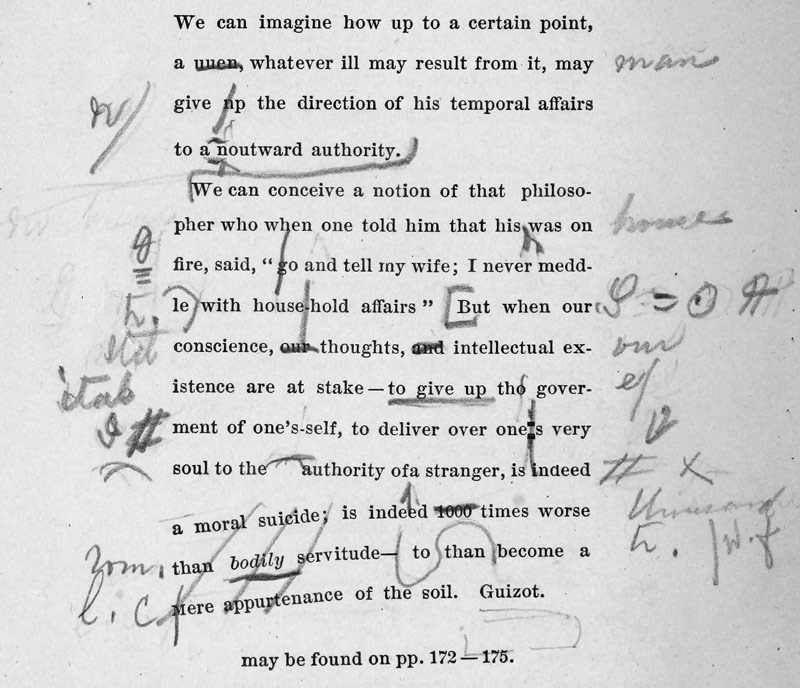 We can imagine how up to a certain point,
a uuen, whatever ill may result from it, may man
w/ give np the direction of his temporal affairs
to a noutward authority.
We can conceive a notion of that philoso-
pher who when one told him that his was on house
fire, said, “ go and tell my wife; I never medd-
le with house-hold affairs ” But when our
stet conscience, our thoughts, and intellectual ex- our
existence are at stake — to give up the gover- e/
ment of one's-self, to deliver over one's very
soul to the authority ofa stranger, is indeed
a moral suicide; is indeed 1000 times worse thousand
rom. than bodily servitude— to than become a tr. w.f
l. c mere appurtenance of the soil. Guizot.
may be found on pp. 172 — 175.